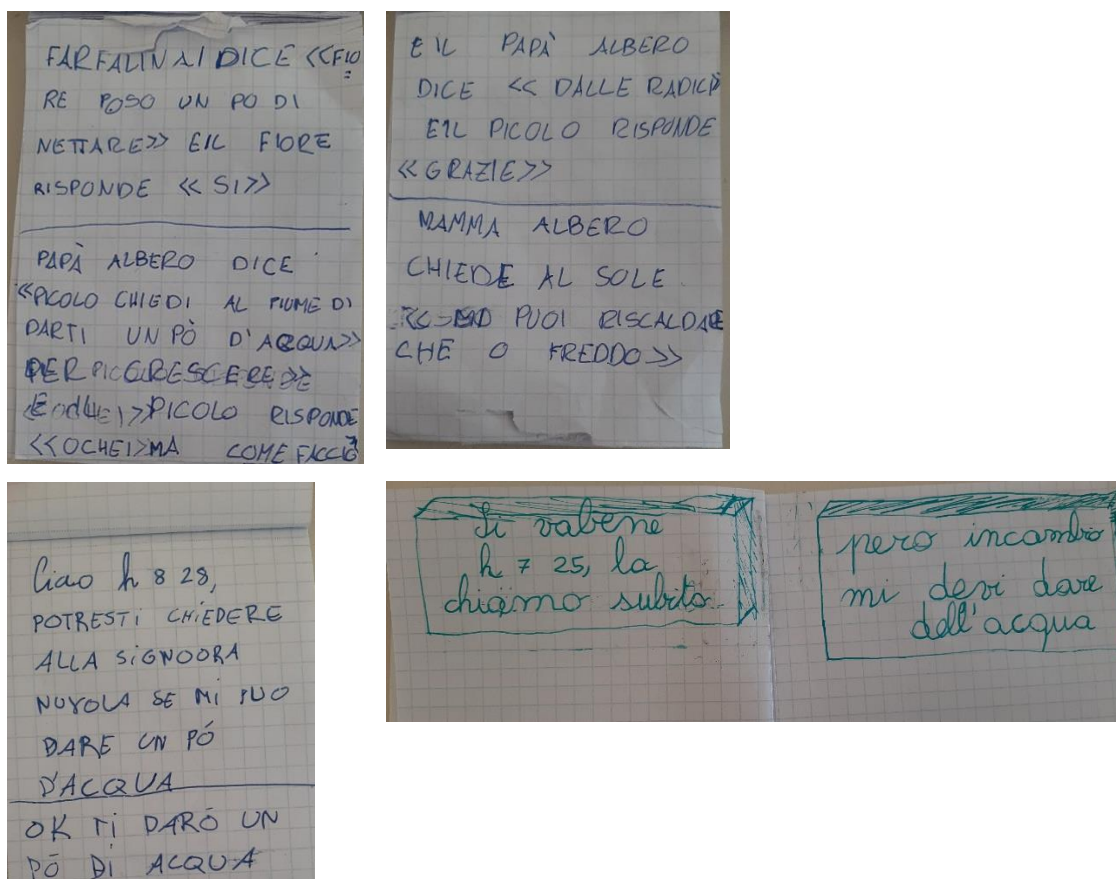 FARFALINA DICE <<FIO
RE POSO UN PO DI
NETTARE>> E IL FIORE
RISPONDE << SI>>
PAPÀ ALBERO DICE
<<PICOLO CHIEDI AL FIUME DI
DARTI UN PÒ D'ACQUA>>
PER CRESCERE>>
PICOLO RISPONDE
<<OCHEI>MA COME FACCIO
E IL PAPÀ ALBERO
DICE << DALLE RADICI
E IL PICOLO RISPONDE
<<GRAZIE>>
MAMMA ALBERO
CHIEDE AL SOLE
PUOI RISCALDARE
CHE O FREDDO>>
Ciao h 8 28,
POTRESTI CHIEDERE
ALLA SIGNOORA
NUVOLA SE MI PUO
DARE UN PÓ
D'ACQUA
OK TI DARÓ UN
PÓ DI ACQUA
Si vabene
h 7 25, la
chiamo subito
pero incambio
mi devi dare
dell'acqua